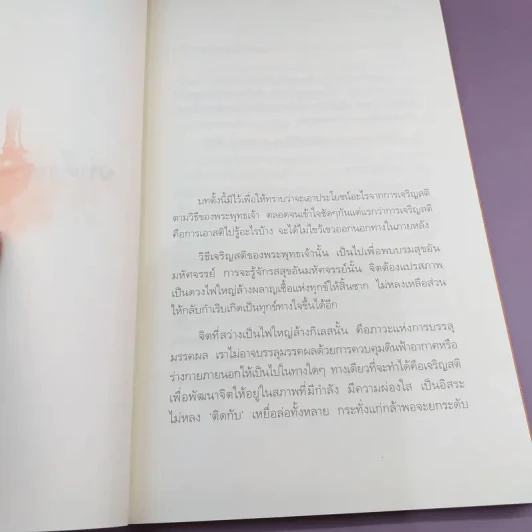 บทตั้งนี้มีไว้เพื่อให้ทราบว่าจะเอาประโยชน์อะไรจากการเจริญสติ
ตามวิธีของพระพุทธเจ้า ตลอดจนเข้าใจชัดๆกันแต่แรกว่าการเจริญสติ
คือการเอาสติไปรู้อะไรบ้าง จะได้ไม่ไขว้เขวออกนอกทางในภายหลัง
วิธีเจริญสติของพระพุทธเจ้านั้น เป็นไปเพื่อพบบรมสุขอัน
มหัศจรรย์ การจะรู้จักรสสุขอันมหัศจรรย์นั้น จิตต้องแปรสภาพ
เป็นดวงไฟใหญ่ล้างผลาญเชื้อแห่งทุกข์ให้สิ้นซาก ไม่หลงเหลือส่วน
ให้กลับกำเริบเกิดเป็นทุกข์ทางใจขึ้นได้อีก
จิตที่สว่างเป็นไฟใหญ่ล้างกิเลสนั้น คือภาวะแห่งการบรรลุ
มรรคผล เราไม่อาจบรรลุมรรคผลด้วยการควบคุมดินฟ้าอากาศหรือ
ร่างกายภายนอกให้เป็นไปในทางใดๆ ทางเดียวที่จะทำได้คือเจริญสติ
เพื่อพัฒนาจิตให้อยู่ในสภาพที่มีกำลัง มีความผ่องใส เป็นอิสระ
ไม่หลง 'ติดกับ' เหยื่อล่อทั้งหลาย กระทั่งแก่กล้าพอจะยกระดับ